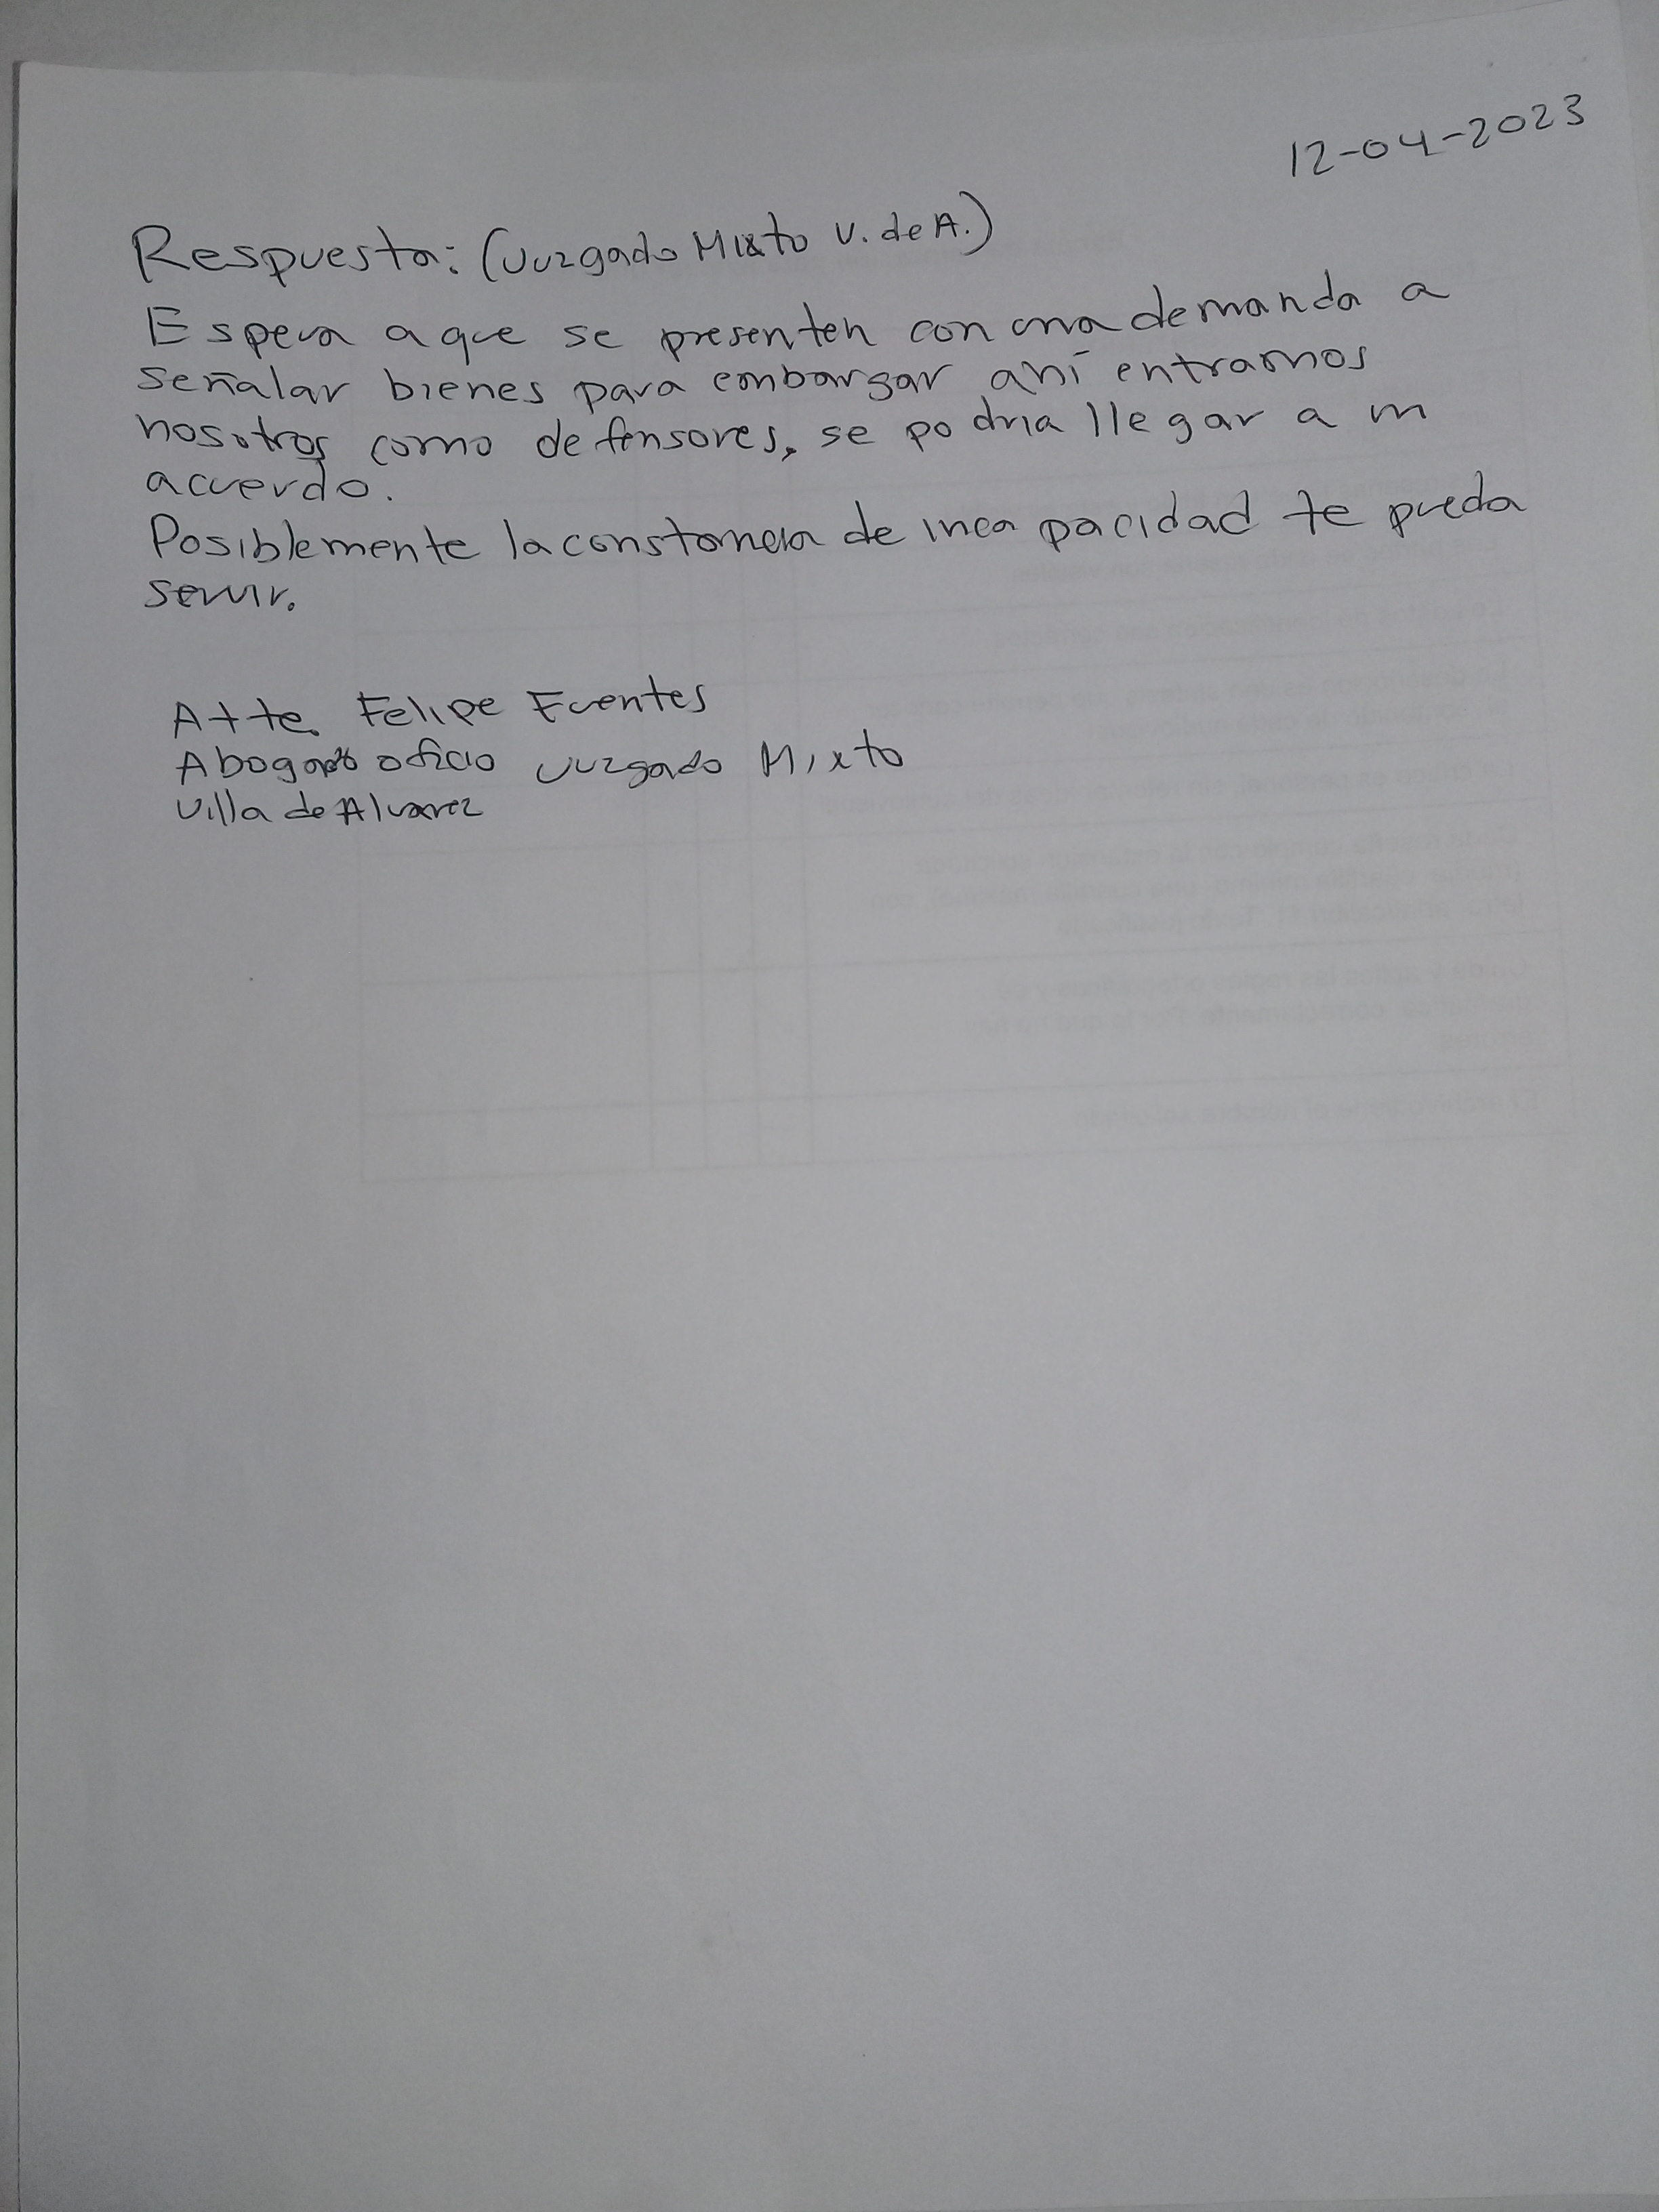 12-04-2023
Respuesta: (Juzgado Mixto V. de A.)
Espera a que se presenten con una demanda a
señalar bienes para embargar ahí entramos
nosotros como defensores, se podria llegar a un
acuerdo.
Posiblemente la constancia de incapacidad te pueda
servir.
Atte. Felipe Fuentes
Abogado oficio Juzgado Mixto
Villa de Alvarez